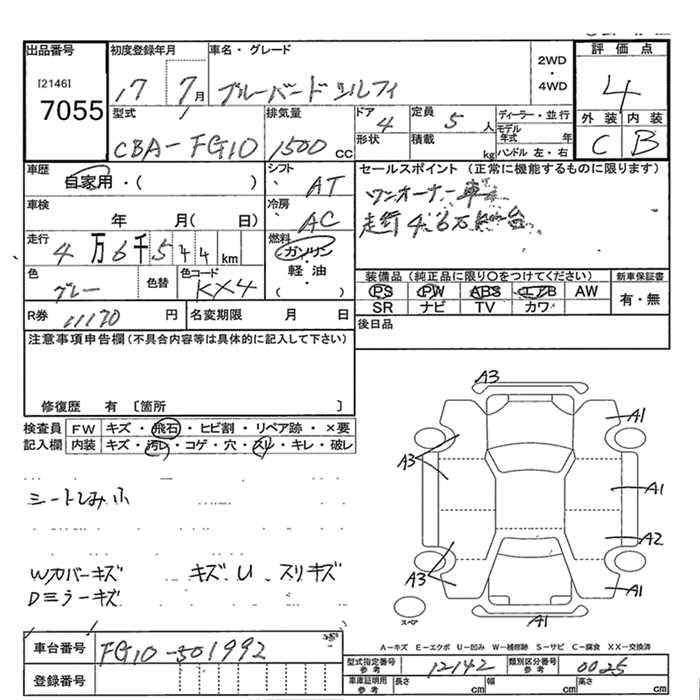 出品番号
[2146]
7055
初度登録年月
17 7月
車名・グレード
ブルーバードシルフィ
2WD
・
4WD
評価点
4
外装 内装
C B
型式
CBA-FG10
排気量
1500 cc
ドア
4
形状
定員
5 人
積載
kg
ディーラー・並行
モデル年式 年
ハンドル 左・右
車歴
自家用・( )
シフト
AT
セールスポイント (正常に機能するものに限ります)
ワンオーナー車
走行4.6万km台
車検
年 月( 日)
冷房
AC
走行
4万6千544km
燃料
ガソリン
・
軽・油
・
( )
色
グレー
色替
色コード
KX4
装備品(純正品に限り○をつけてください)
PS PW ABS エアB AW
SR ナビ TV カワ
新車保証書
有・無
R券 11170 円
名変期限 月 日
後日品
注意事項申告欄(不具合内容等は具体的に記入して下さい)
修復歴 有〔箇所 〕
検査員記入欄
FW キズ・飛石・ヒビ割・リペア跡・×要
内装 キズ・汚レ・コゲ・穴・スレ・キレ・破レ
シートしみ
Wカバーキズ キズ、U、スリキズ
Dミラーキズ
A3
A1
A3
A1
A2
A3
A1
A1
スペア
A-キズ E-エクボ U-凹み W-補修跡 S-サビ C-腐食 XX-交換済
車台番号
FG10-501992
登録番号
型式指定番号 参考
12142
類別区分番号 参考
0025
車庫証明用 参考
長さ cm 幅 cm 高さ cm